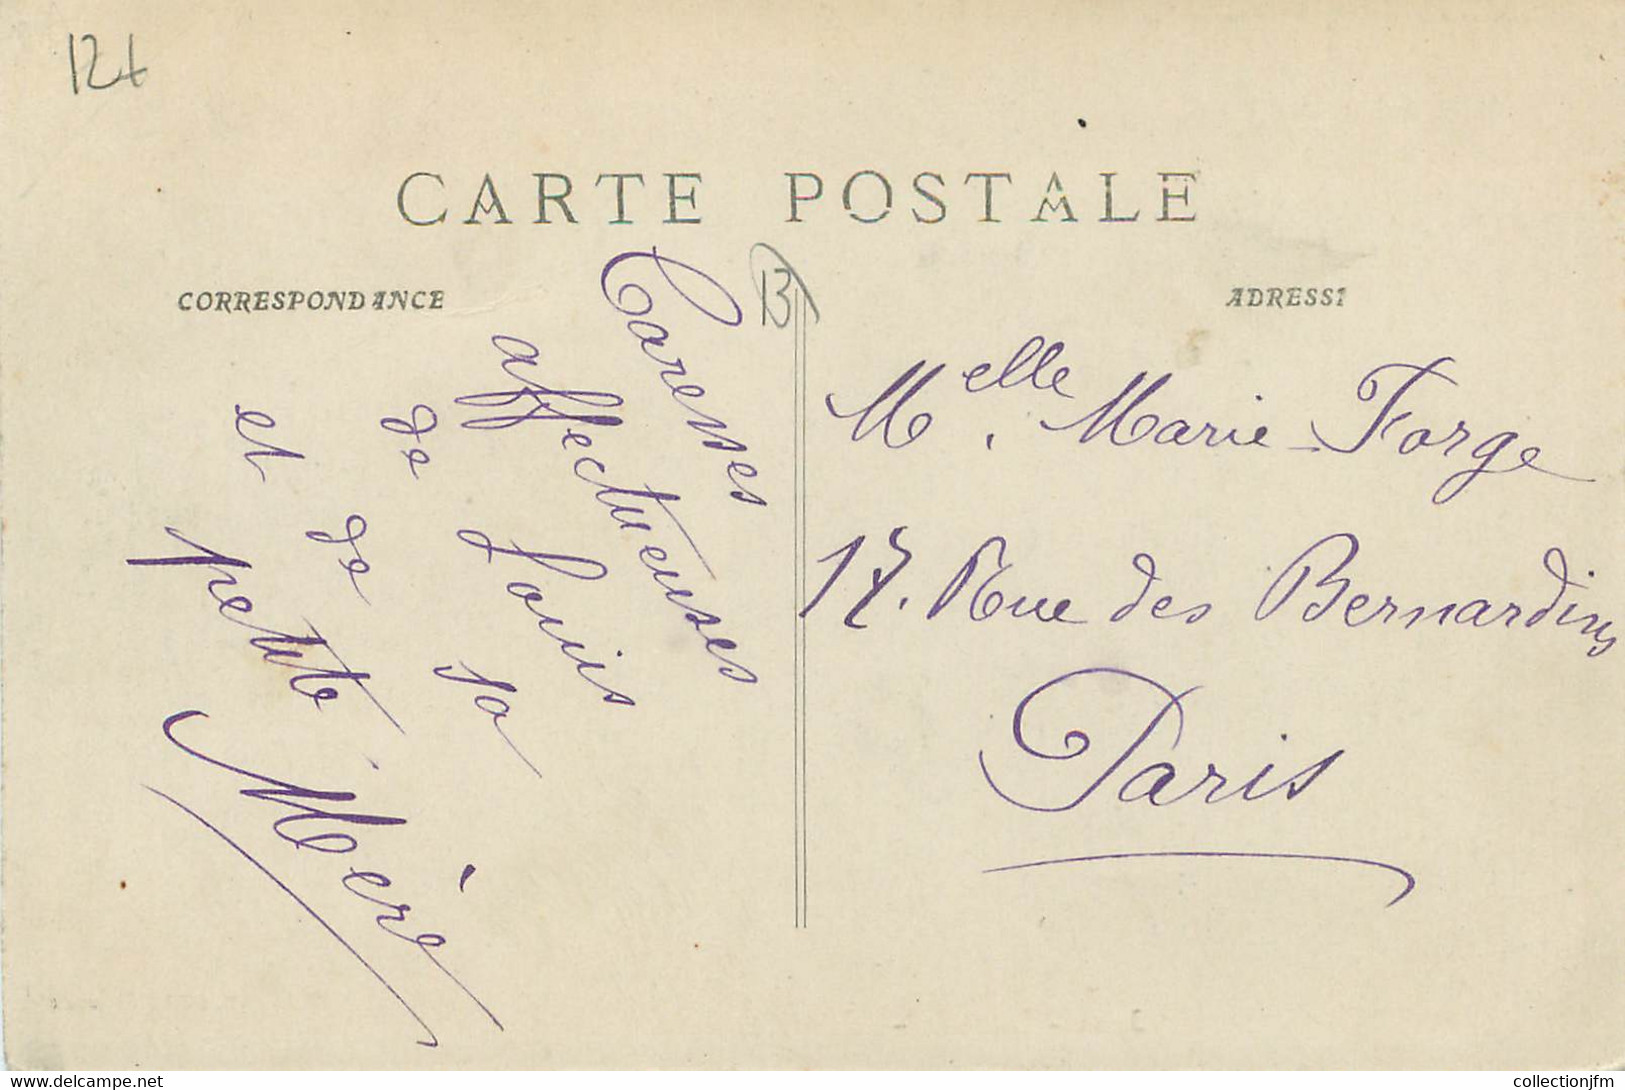 12t
CARTE POSTALE
CORRESPONDANCE
13
ADRESSE
Caresses
affectueuses
de Louis
et de sa
petite
Mère
Melle. Marie Forge
17. Rue des Bernardins
Paris
www.delcampe.net
collectionjfm